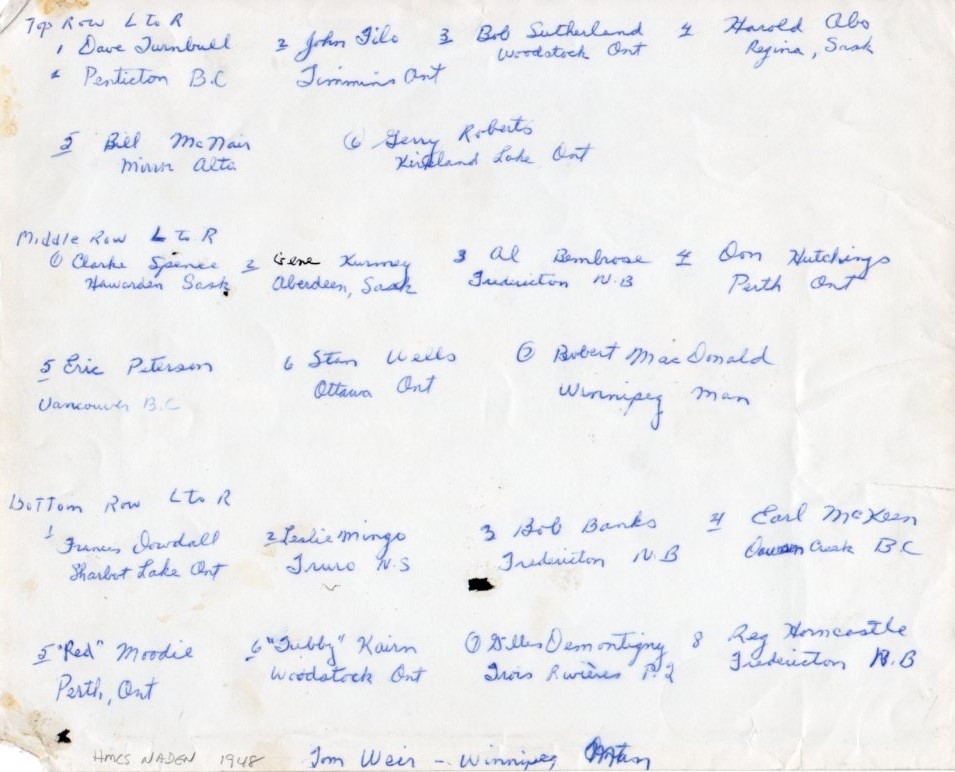 Top Row L to R
1 Dave Turnbull 2 John Filo 3 Bob Sutherland 4 Harold Abo
Penticton B.C Timmins Ont Woodstock Ont Regina, Sask
5 Bill McNair 6 Gerry Roberts
Mirror Alta Kirkland Lake Ont
Middle Row L to R
1 Clarke Spence 2 Gene Kurmey 3 Al Bembrose 4 Don Hutchings
Hawarden Sask Aberdeen, Sask Fredericton N.B Perth Ont
5 Eric Peterson 6 Stan Wells 7 Robert MacDonald
Vancouver B.C Ottawa Ont Winnipeg Man
Bottom Row L to R
1 Francis Dowdall 2 Leslie Mingo 3 Bob Banks 4 Earl McKeen
Sharbot Lake Ont Truro N.S Fredericton N.B Dawson Creek B.C
5 "Red" Moodie 6 "Tubby" Kairn 7 Gilles Demontigny 8 Reg Horncastle
Perth, Ont Woodstock Ont Trois Rivières P.Q Fredericton N.B
HMCS NADEN 1948 Tom Weir - Winnipeg Man